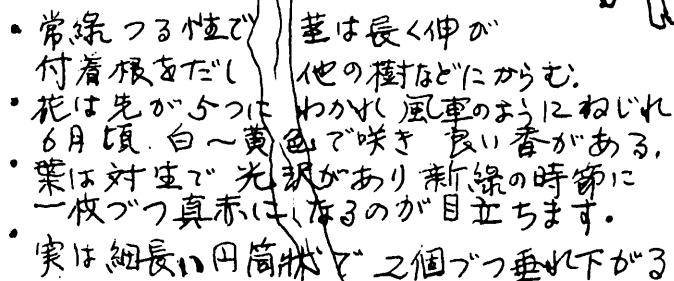 ・常緑つる性で 茎は長く伸が
付着根をだし 他の樹などにからむ.
・花は先が5つに わかれ 風車のようにねじれ
6月頃.白～黄色で咲き 良い香がある.
・葉は対生で 光沢があり 新緑の時節に
一枚づつ真赤に、なるのが目立ちます。
・実は細長い円筒状で 2個づつ垂れ下がる